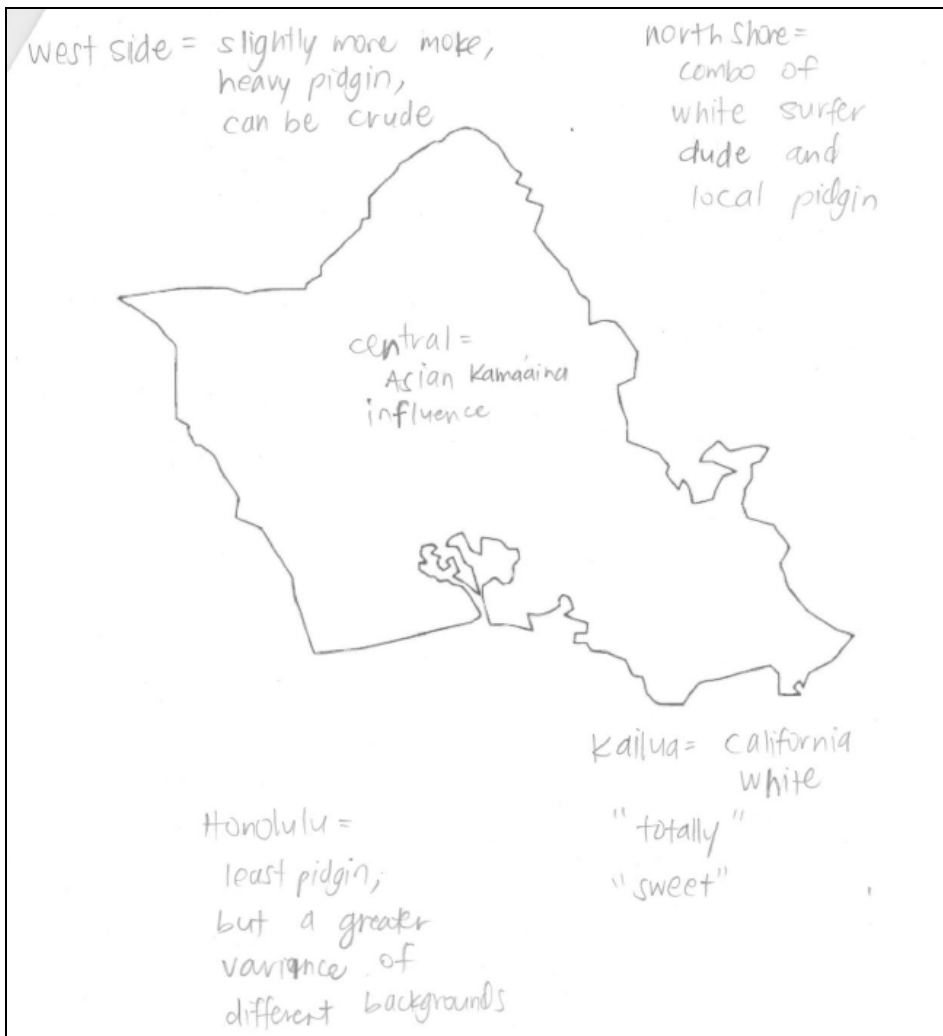 west side = slightly more moke,
heavy pidgin,
can be crude
north shore =
combo of
white surfer
dude and
local pidgin
central =
Asian Kama'aina
influence
Kailua = california
white
"totally"
"sweet"
Honolulu =
least pidgin,
but a greater
variance of
different backgrounds